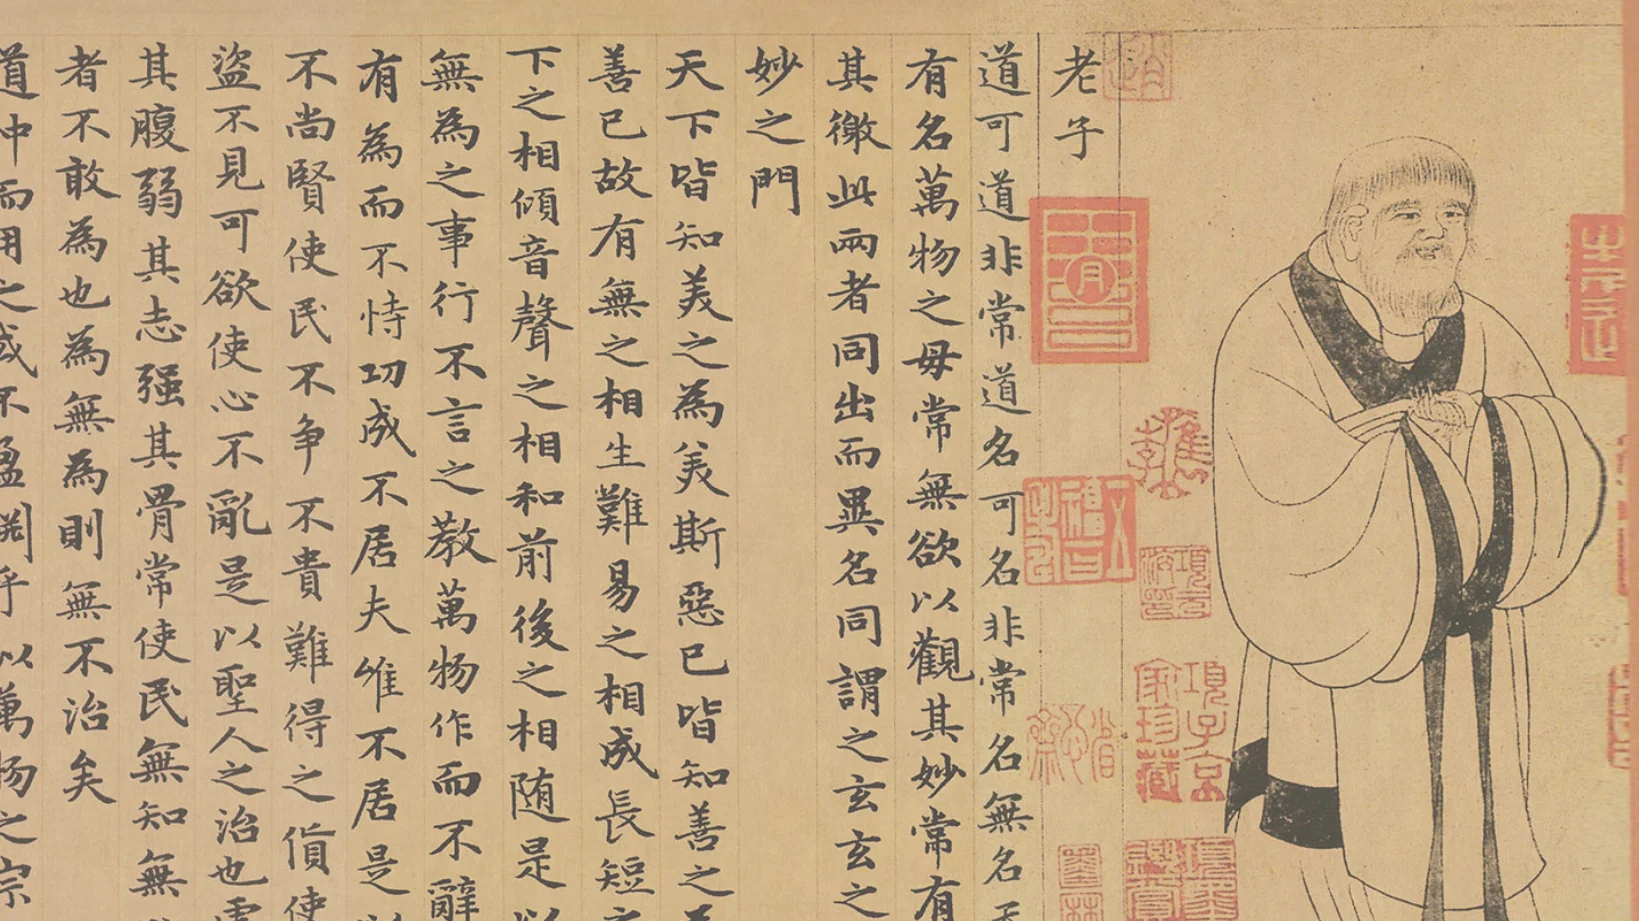 老子
道可道非常道名可名非常名無名
有名萬物之母常無欲以觀其妙常有
其徼此兩者同出而異名同謂之玄玄之
妙之門
天下皆知美之為美斯惡已皆知善之
善已故有無之相生難易之相成長短之
下之相傾音聲之相和前後之相随是以
無為之事行不言之教萬物作而不辭
有為而不恃功成不居夫唯不居是以
不尚賢使民不争不貴難得之貨使
盜不見可欲使心不亂是以聖人之治也
其腹弱其志强其骨常使民無知無
者不敢為也為無為則無不治矣
道冲而用之或不盈淵乎以萬物之宗
項子京家珍藏